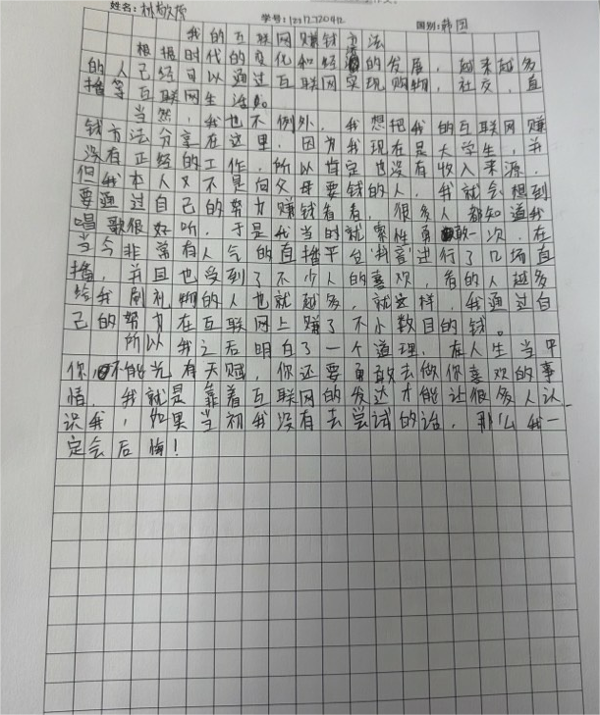 姓名：林敬 学号： 国别：韩国
我的互联网赚钱方法
根据时代的变化和经济的发展，越来越多
的人已经可以通过互联网实现购物，社交，直
播等互联网生活。
当然，我也不例外，我想把我的互联网赚
钱方法分享在这里，因为我现在是大学生，并
没有正经的工作，所以肯定也没有收入来源，
但我本人又不是向父母要钱的人，我就会想到
要通过自己的努力赚钱看看，很多人都知道我
唱歌很好听，于是我当时就索性勇敢一次，在
当今非常有人气的直播平台‘抖音’进行了几场直
播，并且也受到了不少人的喜欢，看的人越多
给我刷礼物的人也就越多，就这样，我通过自
己的努力在互联网上赚了不小数目的钱。
所以我之后明白了一个道理，在人生当中
你不能光有天赋，你还要勇敢去做你喜欢的事
情，我就是靠着互联网的发达才能让很多人认
识我，如果当初我没有去尝试的话，那么我一
定会后悔！